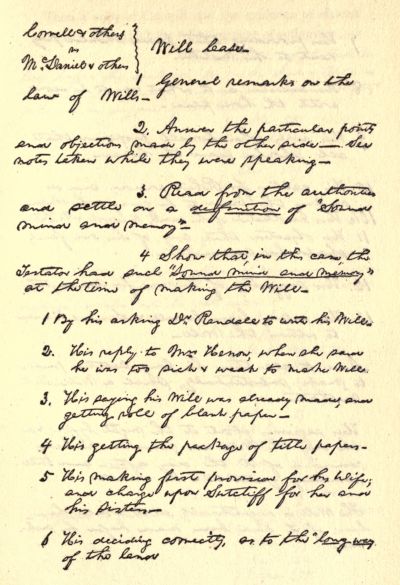 Correll & others
vs
McDaniel & others } Will Case
1 General remarks on the
law of Wills—
2. Answer the particular points
and objections made by the other side— See
notes taken while they were speaking—
3. Read from the authorities
and settle on a definition of "Sound
mind and memory"—
4 Show that, in this case, the
Testator had such "Sound mind and memory"
at the time of making the Will—
1 By his asking Dr. Randall to write his Will
2. His reply to Mrs when she said
he was too sick & weak to make Will.
3. His saying his Will was already made, and
getting roll of blank paper—
4 His getting the package of title papers—
5 His making first provision for his Wife;
and charge upon Sutcliff for her and
his Sisters—
6 His deciding correctly, as to the "long way
of the land